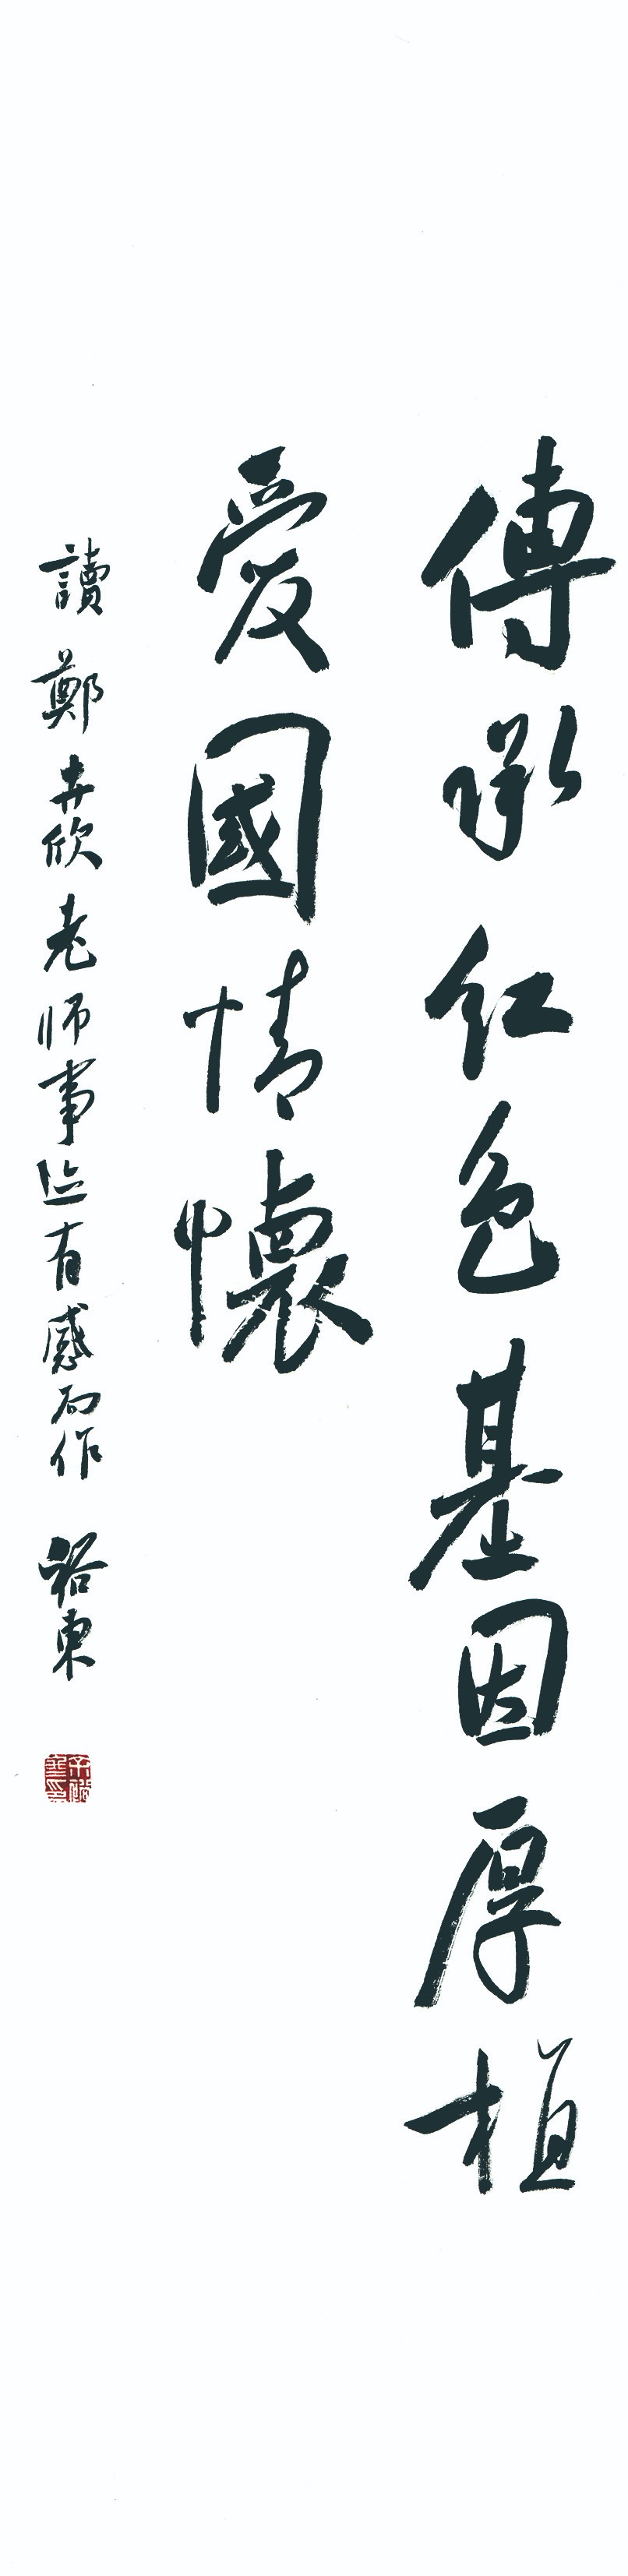 傳承红色基因厚植
愛國情懷
讀鄭卉欣老师事迹有感而作 裕東